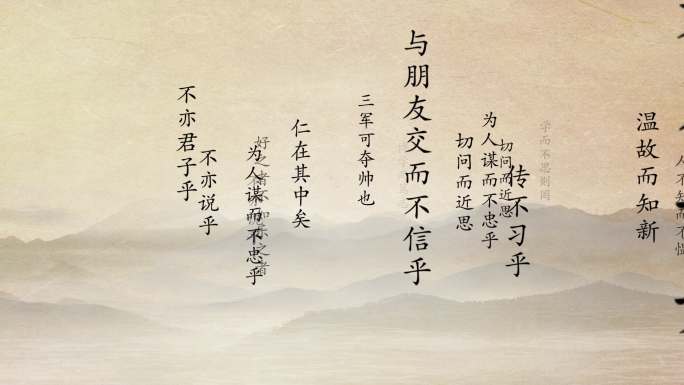 温故而知新
学而不思则罔
传不习乎
切问而近思
为人谋而不忠乎
切问而近思
与朋友交而不信乎
三军可夺帅也
仁在其中矣
好之者不如乐之者
为人谋而不忠乎
不亦说乎
不亦君子乎